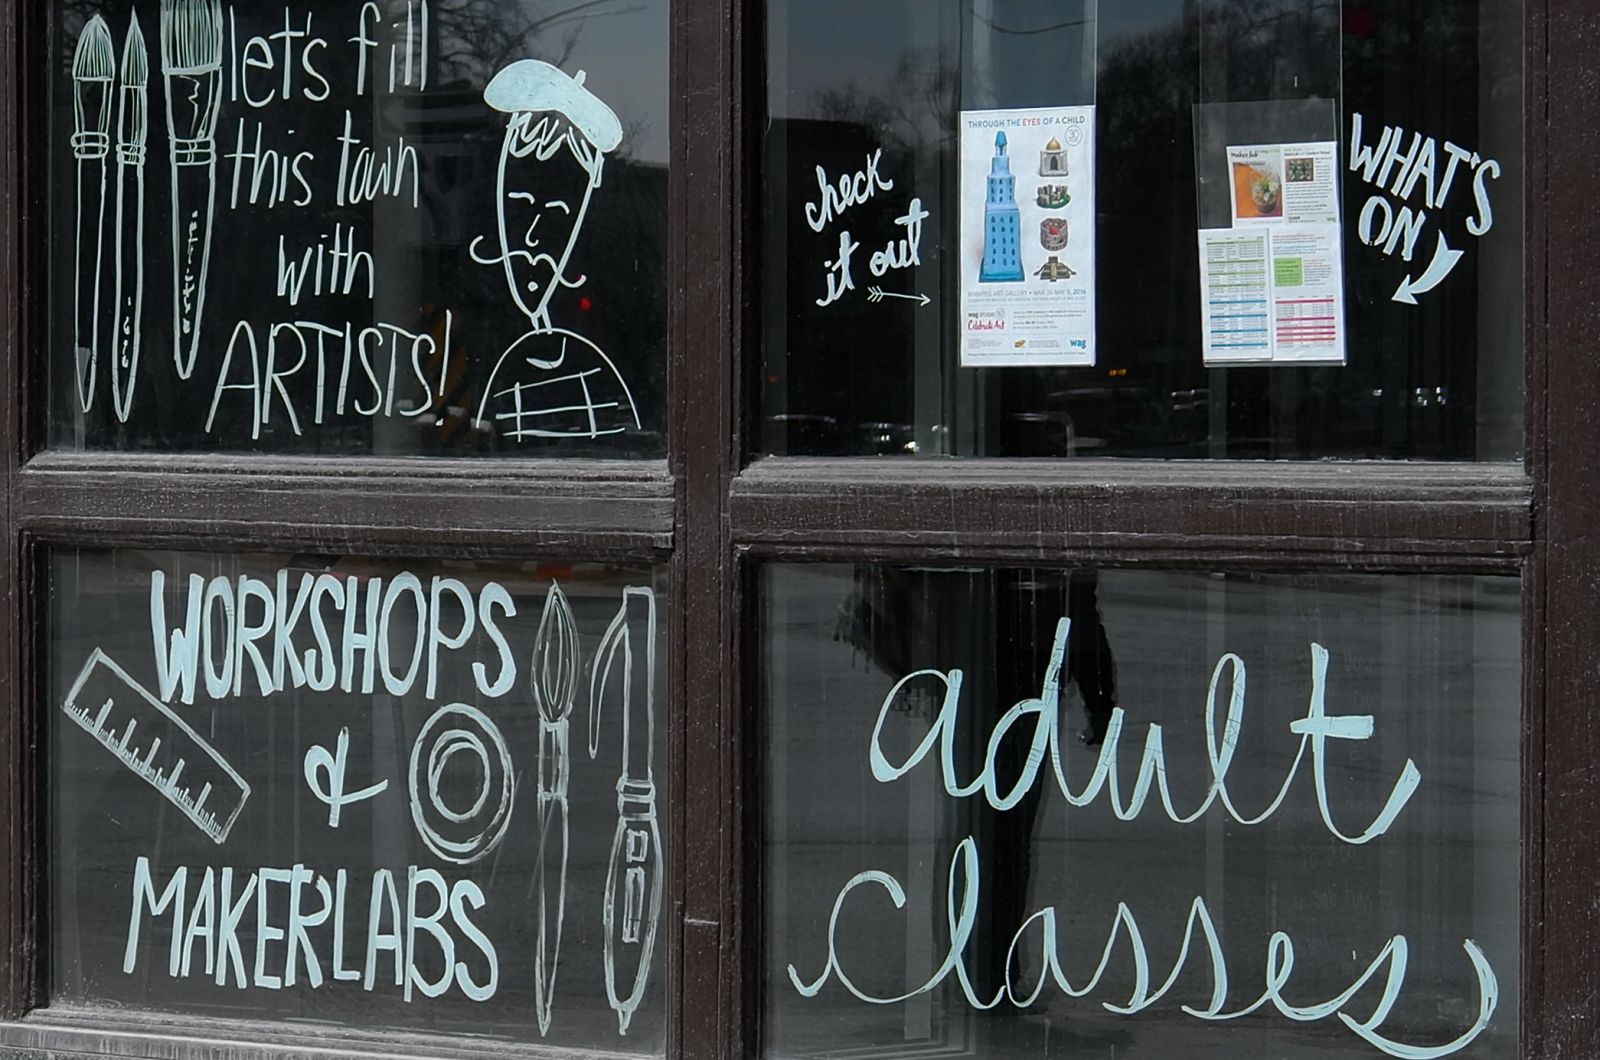 let's fill
this town
with
ARTISTS!
check
it out
THROUGH THE EYES OF A CHILD
30
WINNIPEG ART GALLERY • MAR 26-MAY 8, 2016
wag STUDIO
Celebrate Art
wag
WHAT'S
ON
WORKSHOPS
&
MAKERLABS
adult
classes